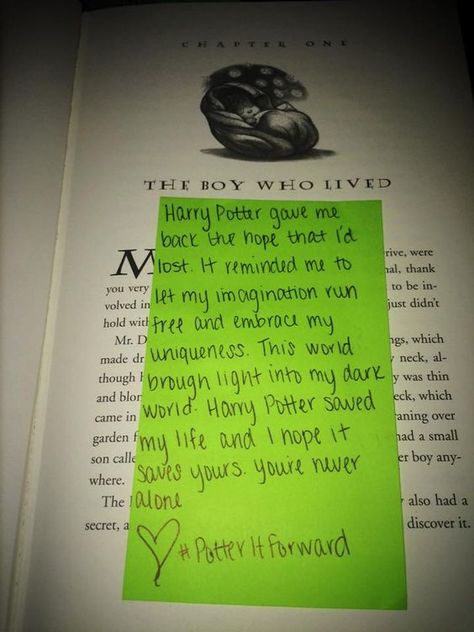 CHAPTER ONE
THE BOY WHO LIVED
Harry Potter gave me
back the hope that I'd
lost. It reminded me to
let my imagination run
free and embrace my
uniqueness. This world
brough light into my dark
world. Harry Potter saved
my life and I hope it
saves yours. you're never
alone
♡ #PotterItForward
were
thank
you very to be in-
volved in just didn't
hold
Mr. which
made neck, al-
though was thin
and which
came in over
garden had a small
son boy any-
where.
The also had a
secret, discover it.